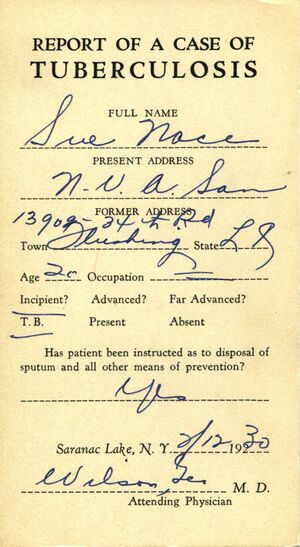 REPORT OF A CASE OF
TUBERCULOSIS
FULL NAME
Sue Nace
PRESENT ADDRESS
N.V.A San
FORMER ADDRESS
13902-34th Rd
Town Flushing State L I
Age 20 Occupation
Incipient? Advanced? Far Advanced?
T.B. Present Absent
Has patient been instructed as to disposal of
sputum and all other means of prevention?
Yes
Saranac Lake, N. Y. 2/12 1930
Wilson, M. D.
Attending Physician